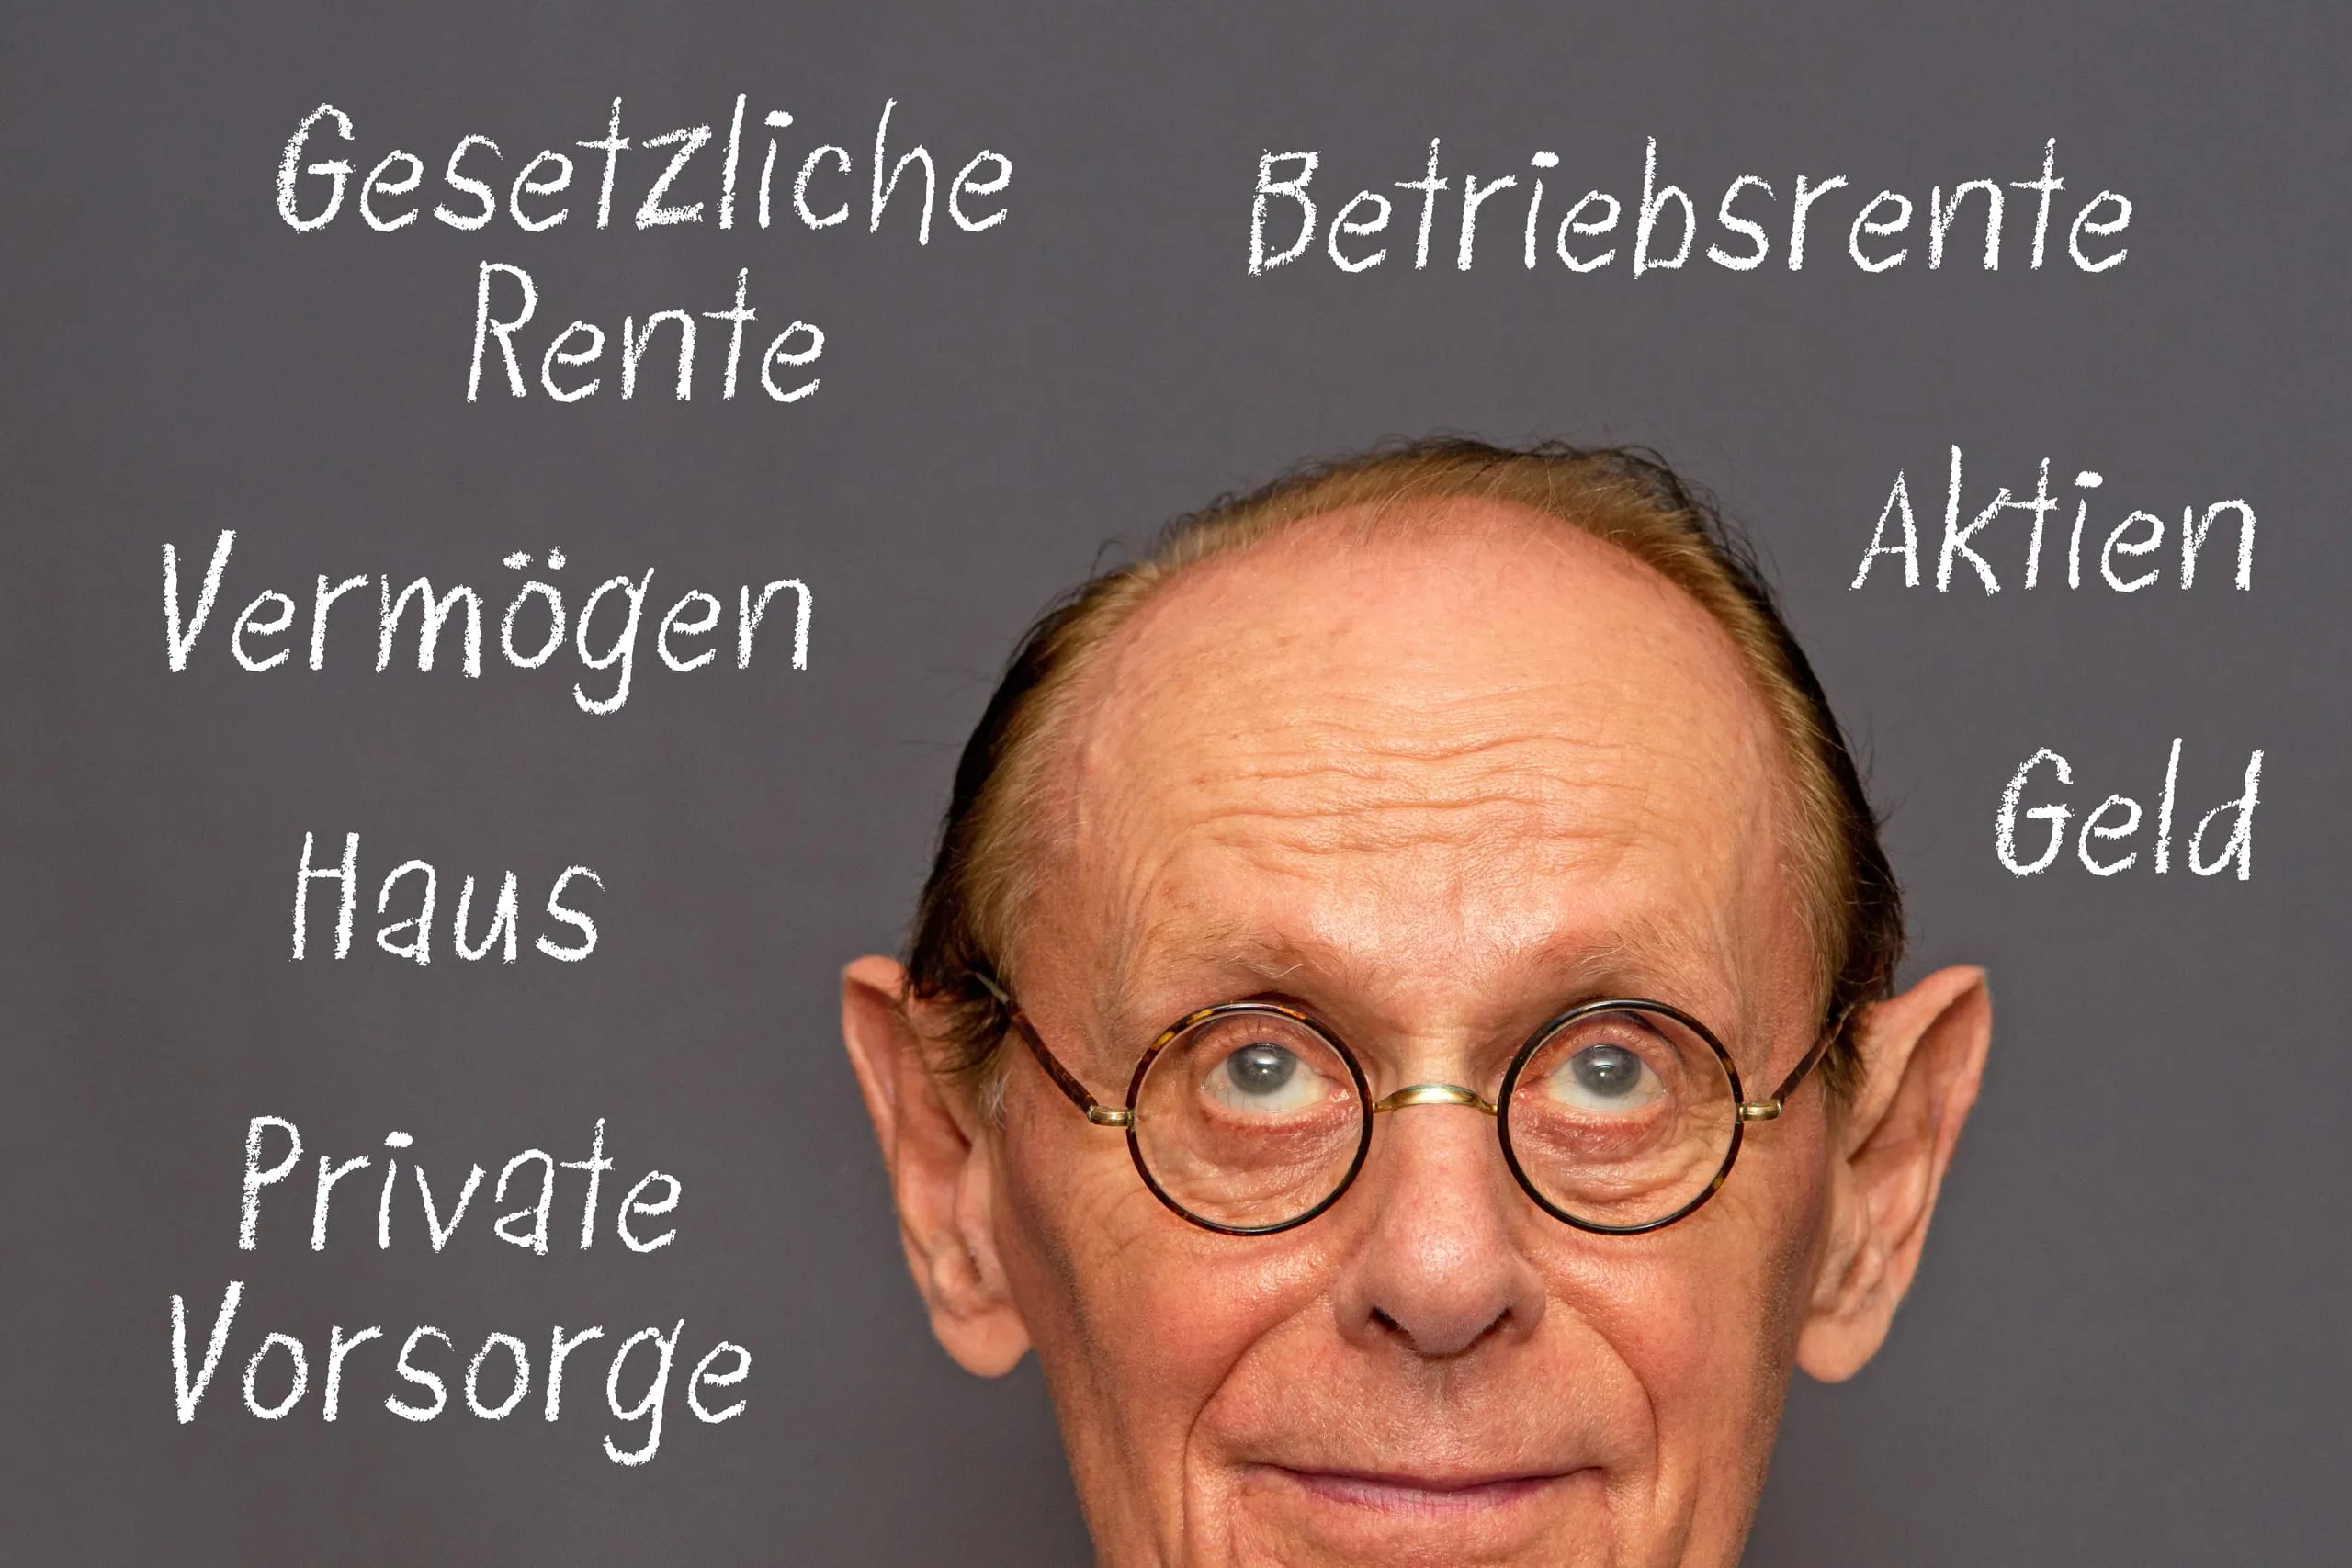 Gesetzliche
Rente
Betriebsrente
Vermögen
Aktien
Haus
Geld
Private
Vorsorge